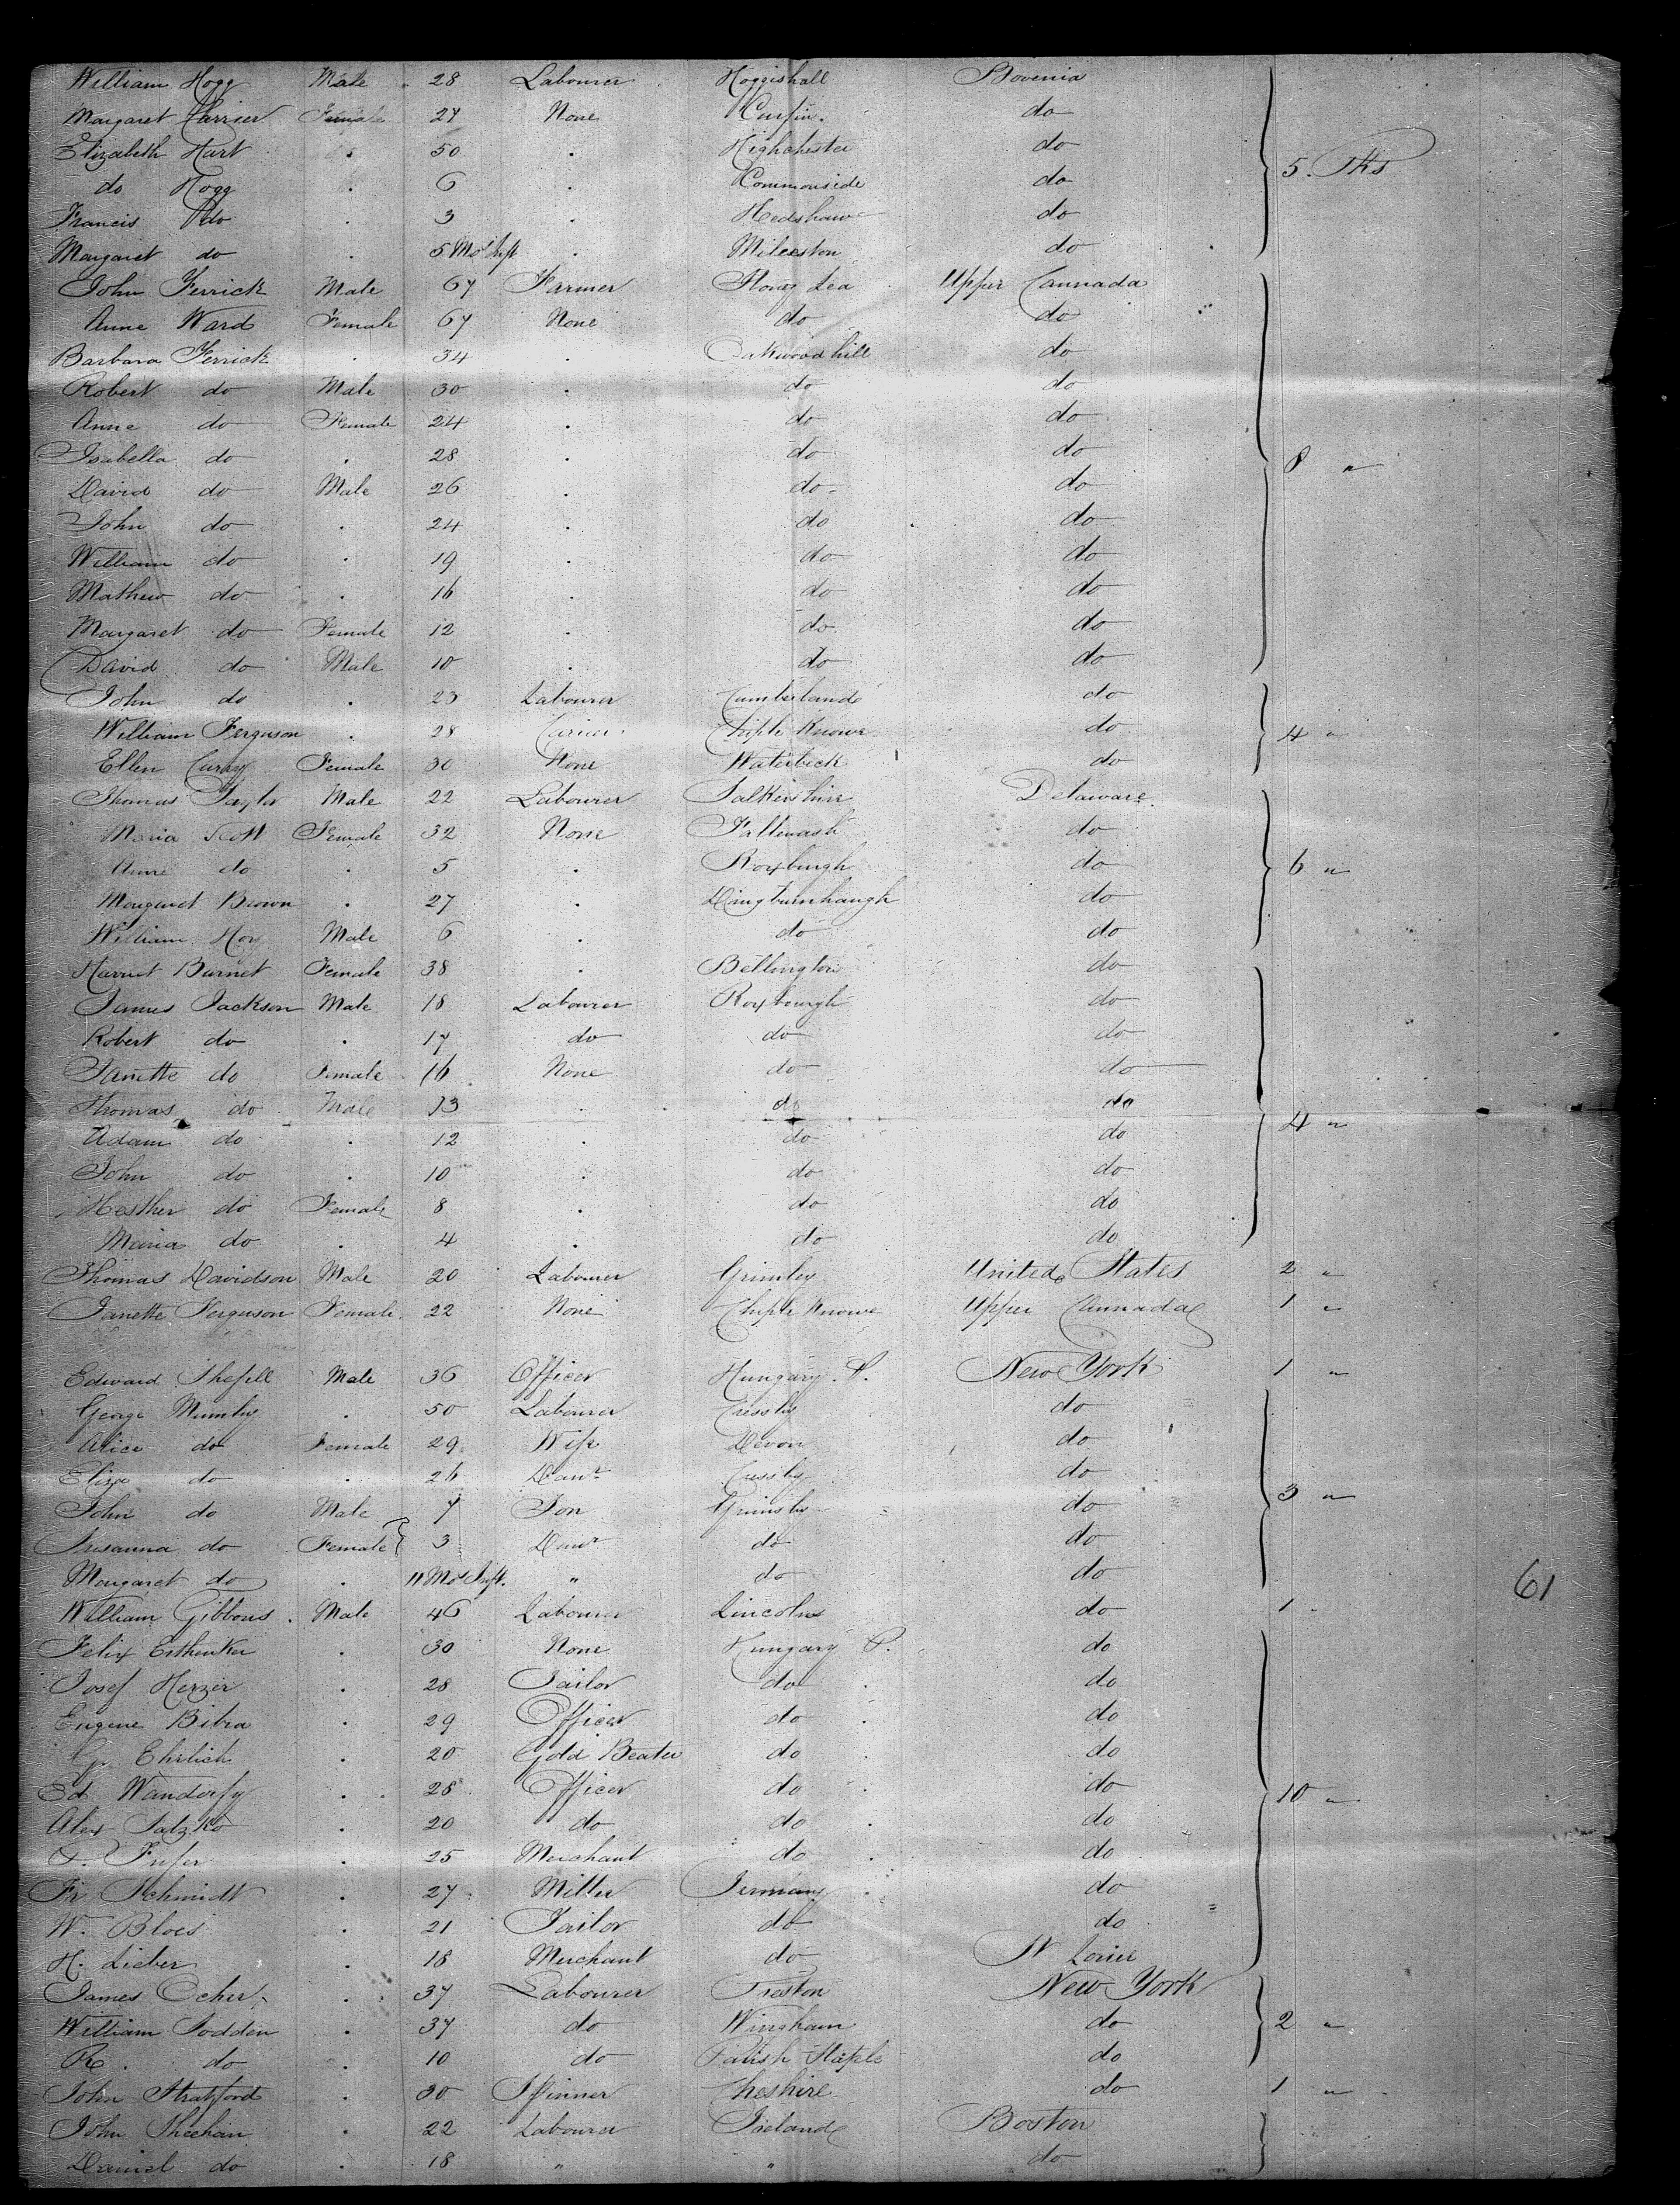 William Hogg Male 28 Labourer Hoggishall Bovenia
Margaret Currier Female 27 None Curfin. do
Elizabeth Hart . 50 . Highchester do 5. Pks
do Hogg . 6 . Commonside do
Francis do . 3 . Hedshaw do
Margaret do . 5 Mos Inft . Milesston do
John Ferrick Male 67 Farmer Stoney Lea Upper Cannada
Anne Ward Female 67 None do do
Barbara Ferrick . 34 . Oakwoodhill do
Robert do Male 30 . do do
Anne do Female 24 . do do
Isabella do . 28 . do do 8 "
David do Male 26 . do do
John do . 24 . do do
William do . 19 . do do
Mathew do . 16 . do do
Margaret do Female 12 . do do
David do Male 10 . do do
John do . 23 Labourer Cumberland do
William Ferguson . 28 Knowe do 4 "
Ellen Female 30 None Waterbeck do
Thomas Taylor Male 22 Labourer Delaware
Maria Scott Female 32 None do
Anne do . 5 . Roxburgh do 6 "
Margaret Brown . 27 . do
William Hoy Male 6 . do do
Harriet Burnet Female 38 . Bellington do
James Jackson Male 18 Labourer Roxbourgh do
Robert do . 17 do do do
Janette do Female 16 None do do
Thomas do Male 13 . do do
Adam do . 12 . do do 4 "
John do . 10 . do do
Hesther do Female 8 . do do
Maria do . 4 . do do
Thomas Davidson Male 20 Labourer Grimley United States 2 "
Janette Ferguson Female 22 None Knowe Upper Cannada 1 "
Edward Male 36 Officer Hungary. P. New York 1 "
George Mumby . 50 Labourer Cressby do
Alice do Female 29 Wife Devon do
Eliza do . 26 Daur Cressby do
John do Male 7 Son Grimsby do 3 "
Susanna do Female 3 Daur do do
Margaret do . 11 Mos Inft. " do do
61
William Gibbons Male 46 Labourer Lincoln do 1 "
Felix . 30 None Hungary P. do
Josef Herzer . 28 Tailor do do
Eugene Bibra . 29 Officer do do
G. Ehrlich . 20 Gold Beater do do
Ed Wandorfy . 28 Officer do do 10 "
Alex Satzko . 20 do do do
. 25 Merchant do do
Fr Schmidt . 27 Miller Germany do
W. Bloes . 21 Tailor do do
H. Lieber . 18 Merchant do
James Ocher . 37 Labourer New York
William Sodden . 37 do Wingham do 2 "
R. do . 10 do Parish Staple do
John Stratford . 30 Spinner Cheshire do 1 "
John Sheehan . 22 Labourer Ireland Boston
Daniel do . 18 " " do